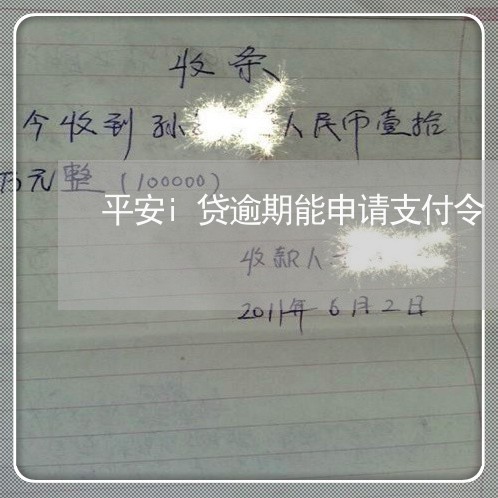 收条
今收到孙 人民币壹拾
万元整 (100000)
平安i贷逾期能申请支付令
收款人
2011年6月2日